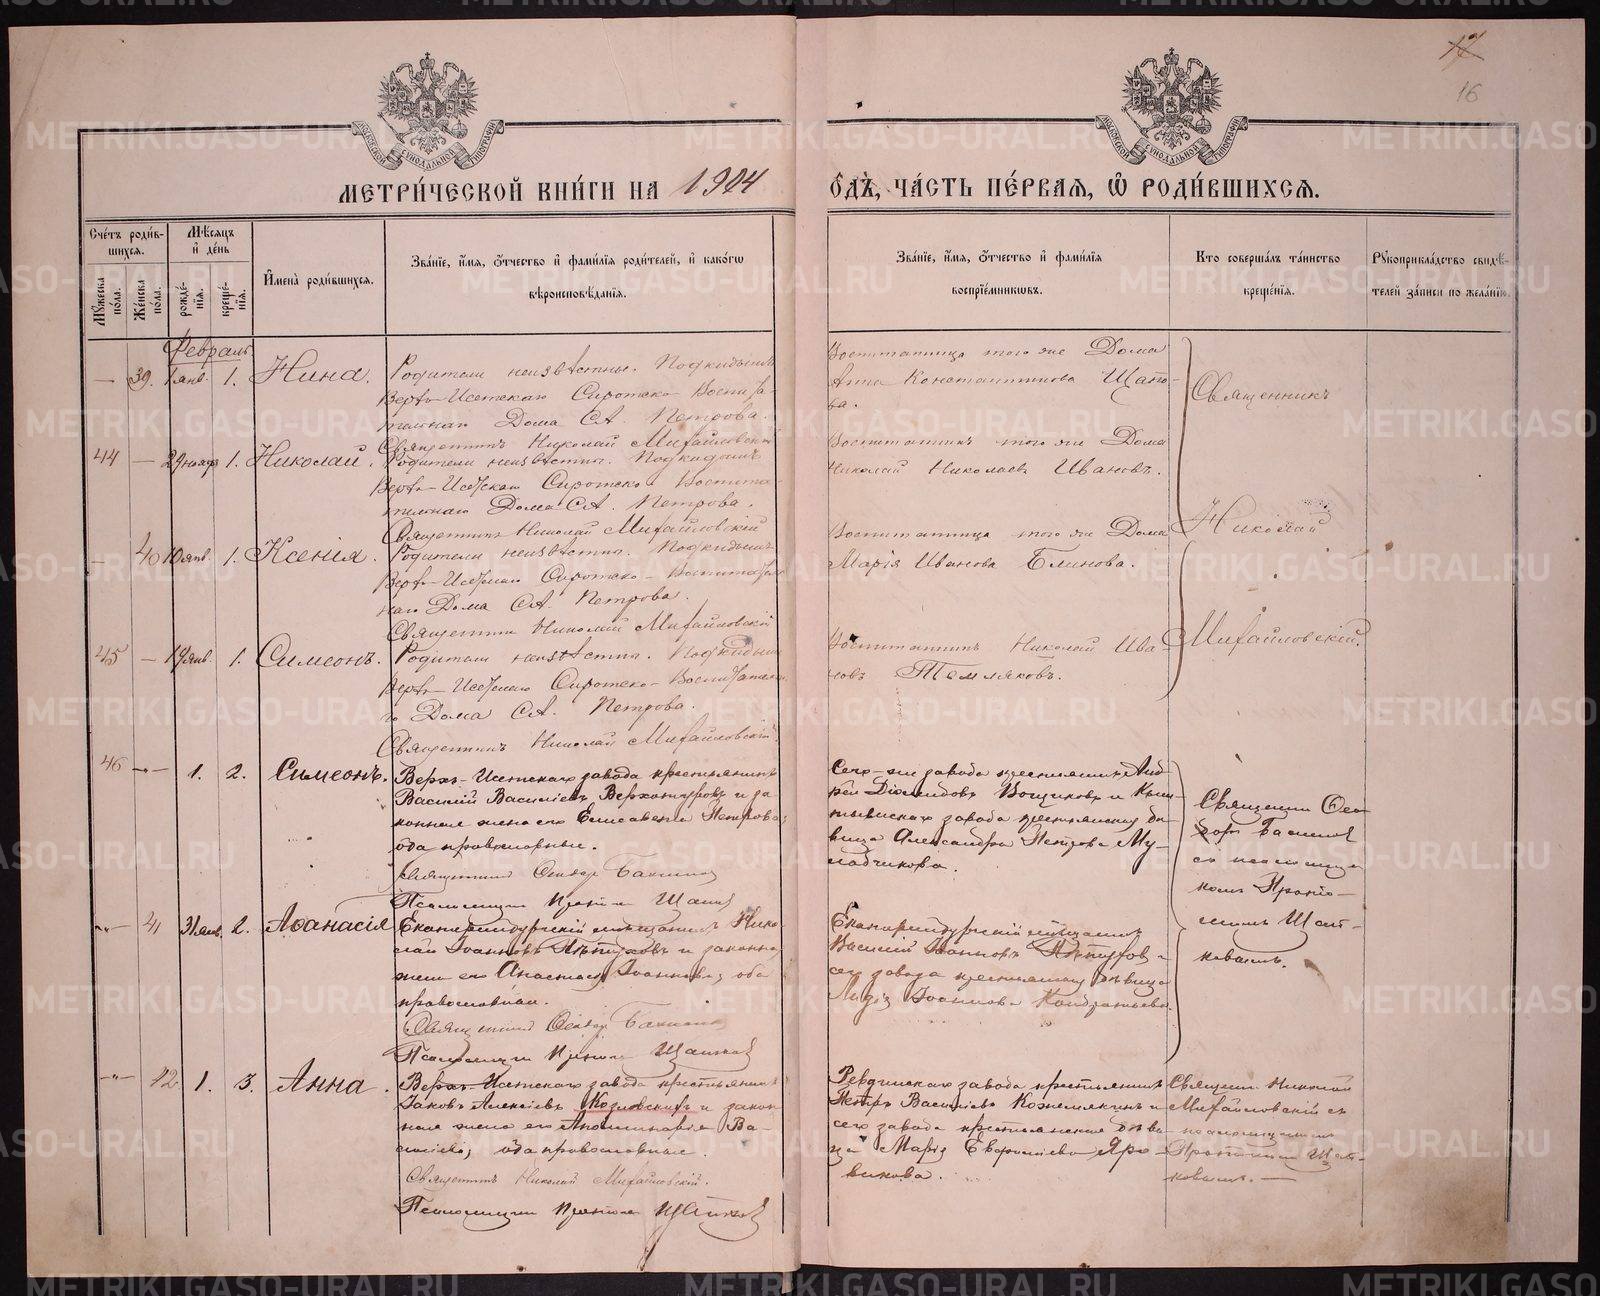 17
16
МОСКОВСКОЙ СѴНОДАЛЬНОЙ ТИПОГРАФІИ
МОСКОВСКОЙ СѴНОДАЛЬНОЙ ТИПОГРАФІИ
МЕТРИ́ЧЕСКОЙ КНИ́ГИ НА 1904
ОДЪ, ЧА́СТЬ ПЕ́РВАЯ, Ѿ РОДИ́ВШИХСЯ.
Сче́тъ роди́вшихся.
Му́жеска по́ла.
Же́нска по́ла.
Мѣ́сяцъ и де́нь
рожде́нія.
креще́нія.
Имена̀ роди́вшихся.
Зва́ніе, и́мя, о́тчество и фами́лія роди́телей, и како́гѡ
вѣроисповѣ́данія.
Зва́ніе, и́мя, о́тчество и фами́лія
воспріе́мникѡвъ.
Кто соверша́лъ та́инство
креще́нія.
Рукоприкла́дство свидѣ́-
телей за́писи по жела́нію.
Февраль
— 39. 1 янв. 1. Нина.
Родители неизвѣстны. Подкидышъ
Верхъ-Исетскаго Сиротско-Воспита-
тельнаго Дома С.А. Петрова.
Священникъ Николай Михайловскій
Воспитанница того же Дома
Анна Константинова Щапо-
ва.
44 — 29 ноября 1. Николай.
Родители неизвѣстны. Подкидышъ
Верхъ-Исетскаго Сиротско-Воспита-
тельнаго Дома С.А. Петрова.
Священникъ Николай Михайловскій
Воспитанникъ того же Дома
Николай Николаевъ Ивановъ.
— 40 10 янв. 1. Ксенія.
Родители неизвѣстны. Подкидышъ
Верхъ-Исетскаго Сиротско-Воспитатель-
наго Дома С.А. Петрова.
Священникъ Николай Михайловскій
Воспитанница того же Дома
Марія Иванова Блинова.
45 — 19 янв. 1. Симеонъ.
Родители неизвѣстны. Подкидышъ
Верхъ-Исетскаго Сиротско-Воспитательна-
го Дома С.А. Петрова.
Священникъ Николай Михайловскій.
Воспитанникъ Николай Ива
новъ Тепляковъ.
Священникъ
Николай
Михайловскій.
46 — 1. 2. Симеонъ.
Верхъ-Исетскаго завода крестьянинъ
Василій Васильевъ Верхотуровъ и за
конная жена его Елисавета Петрова,
оба православные.
Священникъ Ѳеодоръ
Псаломщикъ
Сего-же завода крестьянинъ Анд
рей Діомидовъ и Кыш
тымскаго завода крестьянская дѣ
вица Александра Петрова Му-
Священникъ Ѳео
доръ
съ псаломщи
комъ
-"- 41 31 янв. 2. Аѳанасія
Екатеринбургскій мѣщанинъ Нико
лай Іоанновъ Пѣтуховъ и законная
жена его Анастасія Іоаннова, оба
православные.
Священникъ Ѳеодоръ
Псаломщикъ
Екатеринбургскій мѣщанинъ
Василій Іоанновъ Пѣтуховъ и
сего завода крестьянская дѣвица
Лидія Іоаннова Кондратьева.
-"- 42 1. 3. Анна.
Верхъ-Исетскаго завода крестьянинъ
Іаковъ Алексіевъ Козловскихъ и закон
ная жена его Аполлинарія Ва-
силіева, оба православные.
Священникъ Николай Михайловскій.
Псаломщикъ
Ревдинскаго завода крестьянинъ
Петръ Василіевъ Кожемякинъ и
сего завода крестьянская дѣви
ца Марія
Священ. Николай
Михайловскій съ
псаломщикомъ
METRIKI.GASO-URAL.RU